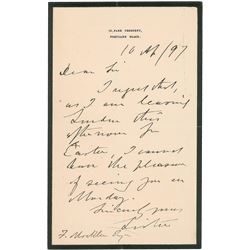 12, PARK CRESCENT,
PORTLAND PLACE.
10 Ap/97
Dear Sir
I regret that,
as I am leaving
London this
afternoon for
Easter, I cannot
have the pleasure
of seeing you on
Monday.
Sincerely yours
Lister